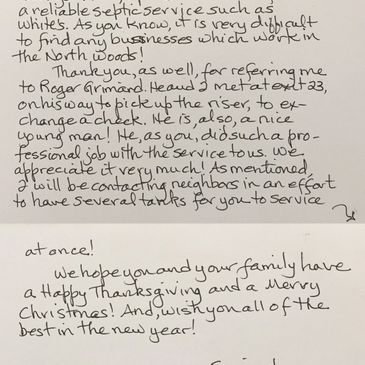 a reliable septic service such as
White's. As you know, it is very difficult
to find any businesses which work in
the North woods!
Thank you, as well, for referring me
to Roger Grimard. He and I met at exit 23,
on his way to pick up the riser, to ex-
change a check. He is, also, a nice
young man! He, as you, did such a pro-
fessional job with the service to us. We
appreciate it very much! As mentioned,
I will be contacting neighbors in an effort
to have several tanks for you to service
at once!
We hope you and your family have
a Happy Thanksgiving and a Merry
Christmas! And, wish you all of the
best in the new year!